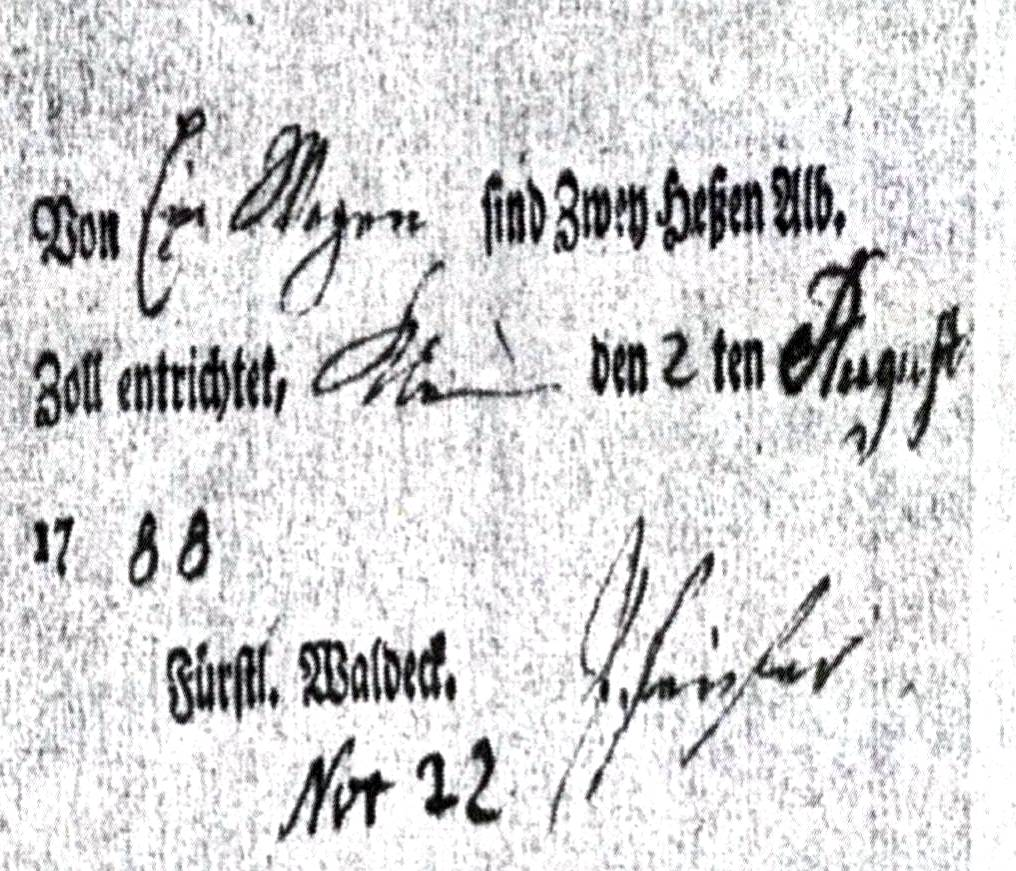 Von Ein Wagen sind Zwey Heßen Alb.
Zoll entrichtet, den 2 ten August
17 88
Fürstl. Waldeck.
Nor 22